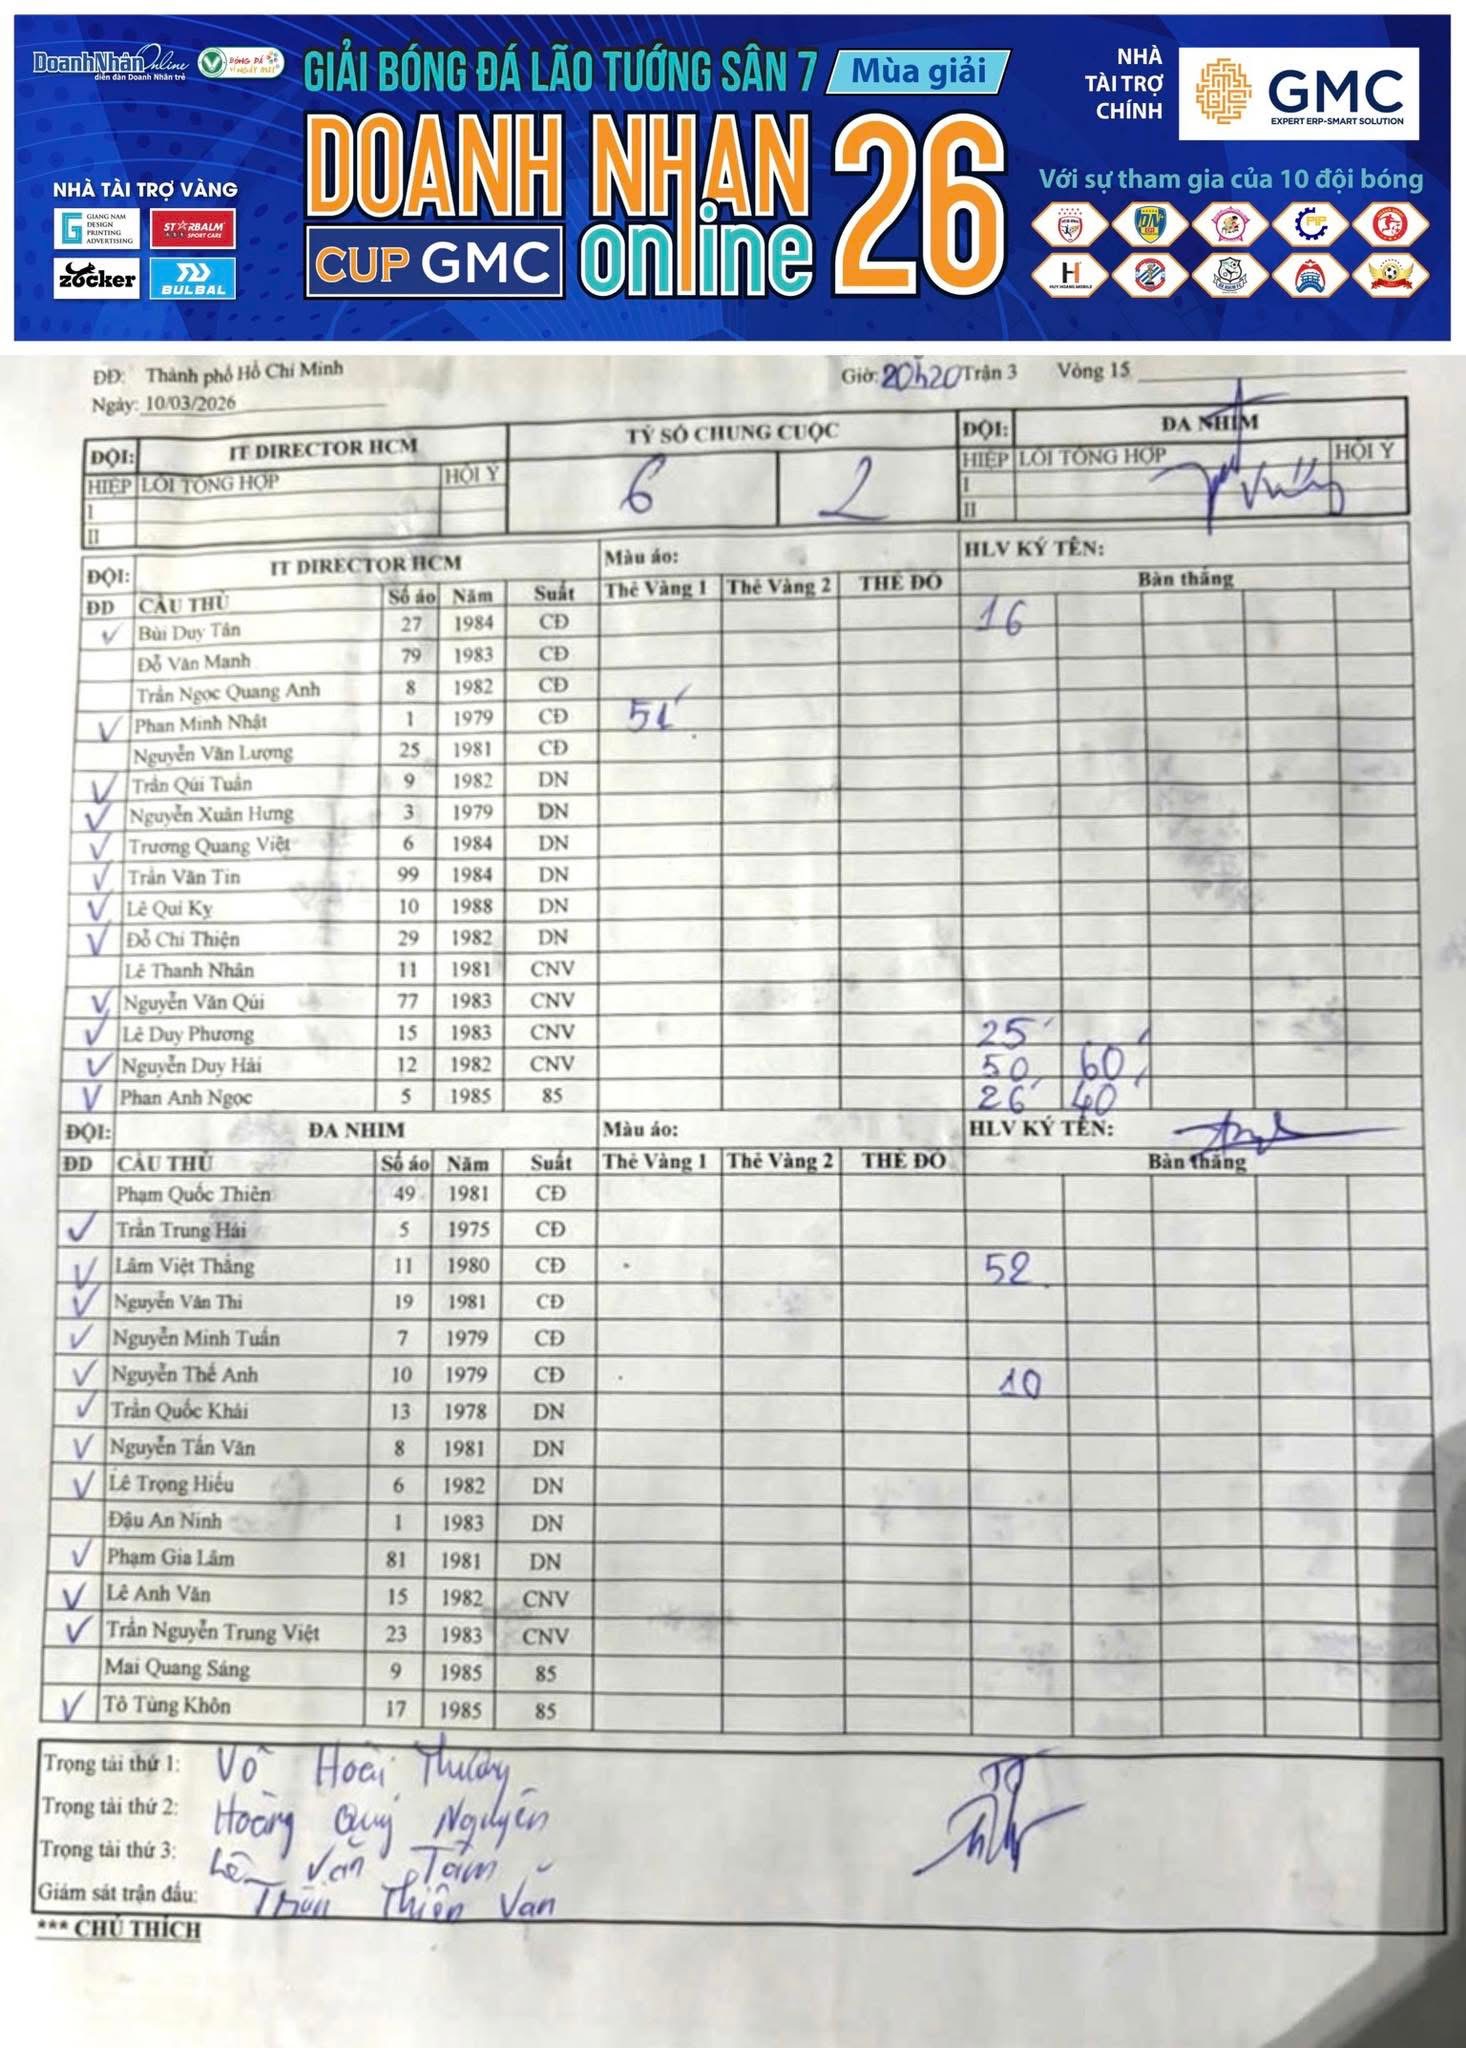 DoanhNhânOnline
diễn đàn Doanh Nhân trẻ
BÓNG ĐÁ
VÌ NGÀY MAI
GIẢI BÓNG ĐÁ LÃO TƯỚNG SÂN 7 Mùa giải
DOANH NHAN 26
CUP GMC online
NHÀ TÀI TRỢ VÀNG
GIANG NAM
DESIGN
PRINTING
ADVERTISING
STARBALM
SPORT CARE
zocker
BULBAL
NHÀ
TÀI TRỢ
CHÍNH
GMC
EXPERT ERP-SMART SOLUTION
Với sự tham gia của 10 đội bóng
HUY HOANG MOBILE
ĐĐ: Thành phố Hồ Chí Minh Giờ: 20h20 Trận 3 Vòng 15
Ngày: 10/03/2026
ĐỘI: IT DIRECTOR HCM TỶ SỐ CHUNG CUỘC ĐỘI: ĐA NHIM
HIỆP LỖI TỔNG HỢP HỘI Ý 6 2 HIỆP LỖI TỔNG HỢP HỘI Ý
I I
II II
ĐỘI: IT DIRECTOR HCM Màu áo: HLV KÝ TÊN:
ĐD CẦU THỦ Số áo Năm Suất Thẻ Vàng 1 Thẻ Vàng 2 THẺ ĐỎ Bàn thắng
✓ Bùi Duy Tân 27 1984 CĐ 16
Đỗ Văn Mạnh 79 1983 CĐ
Trần Ngọc Quang Anh 8 1982 CĐ
✓ Phan Minh Nhật 1 1979 CĐ 51'
Nguyễn Văn Lượng 25 1981 CĐ
✓ Trần Qúi Tuấn 9 1982 DN
✓ Nguyễn Xuân Hưng 3 1979 DN
✓ Trương Quang Việt 6 1984 DN
✓ Trần Văn Tin 99 1984 DN
✓ Lê Quí Kỵ 10 1988 DN
✓ Đỗ Chí Thiện 29 1982 DN
Lê Thanh Nhân 11 1981 CNV
✓ Nguyễn Văn Qúi 77 1983 CNV
✓ Lê Duy Phương 15 1983 CNV 25'
✓ Nguyễn Duy Hải 12 1982 CNV 50' 60'
✓ Phan Anh Ngọc 5 1985 85 26' 40'
ĐỘI: ĐA NHIM Màu áo: HLV KÝ TÊN:
ĐD CẦU THỦ Số áo Năm Suất Thẻ Vàng 1 Thẻ Vàng 2 THẺ ĐỎ Bàn thắng
Phạm Quốc Thiên 49 1981 CĐ
✓ Trần Trung Hải 5 1975 CĐ
✓ Lâm Việt Thắng 11 1980 CĐ 52
✓ Nguyễn Văn Thi 19 1981 CĐ
✓ Nguyễn Minh Tuấn 7 1979 CĐ
✓ Nguyễn Thế Anh 10 1979 CĐ 10
✓ Trần Quốc Khải 13 1978 DN
✓ Nguyễn Tấn Văn 8 1981 DN
✓ Lê Trọng Hiếu 6 1982 DN
Đậu An Ninh 1 1983 DN
✓ Phạm Gia Lâm 81 1981 DN
✓ Lê Anh Văn 15 1982 CNV
✓ Trần Nguyễn Trung Việt 23 1983 CNV
Mai Quang Sáng 9 1985 85
✓ Tô Tùng Khôn 17 1985 85
Trọng tài thứ 1: Võ Hoài Thương
Trọng tài thứ 2: Hoàng Quý Nguyên
Trọng tài thứ 3: Lê Văn Tâm
Giám sát trận đấu: Trần Thiên Văn
*** CHÚ THÍCH